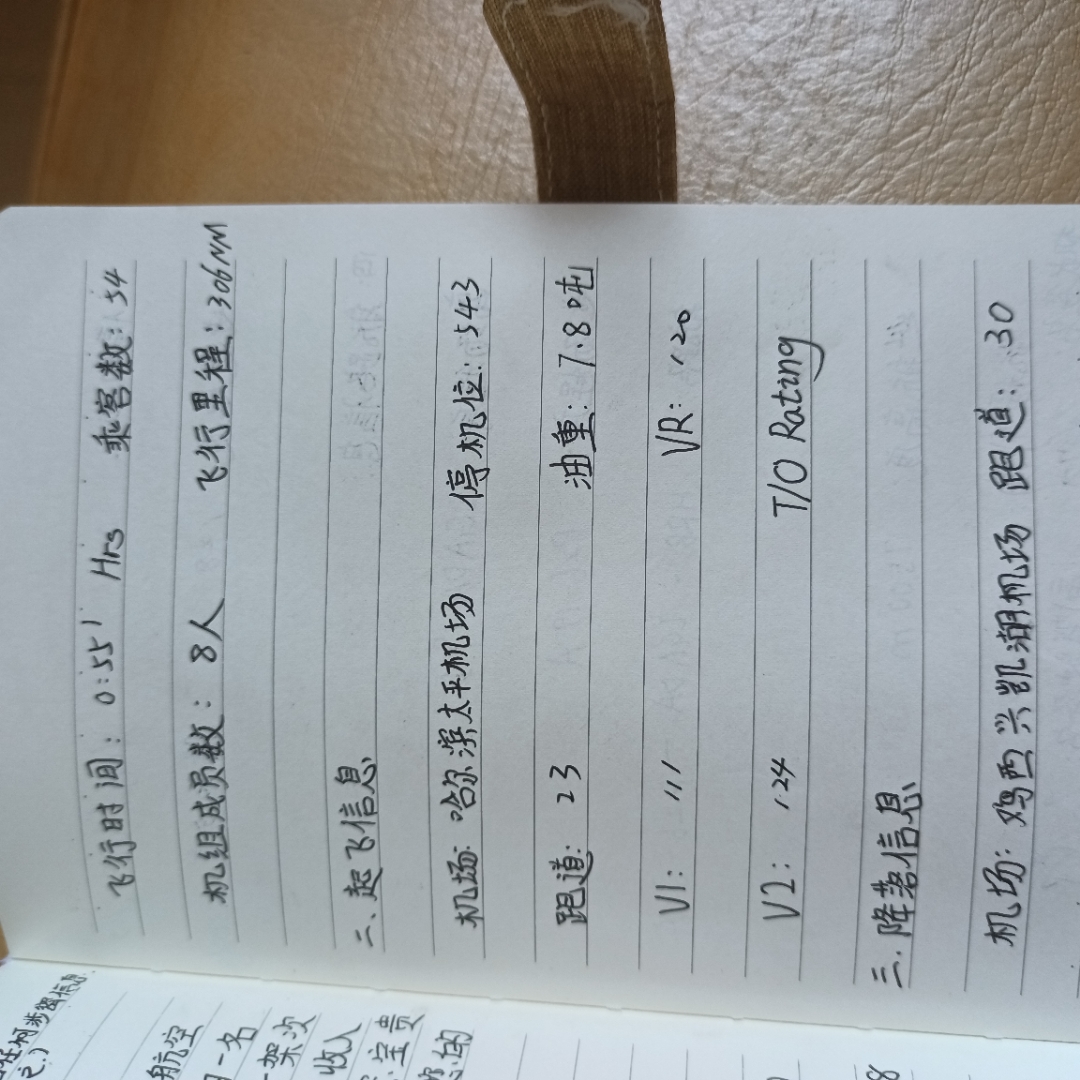 飞行时间: 0:55' Hrs 乘客数: 54
机组成员数: 8人 飞行里程: 306NM
二、起飞信息
机场: 哈尔滨太平机场 停机位: 543
跑道: 23 油重: 7.8吨
V1: 111 VR: 120
V2: 124 T/O Rating
三.降落信息
机场: 鸡西兴凯湖机场 跑道: 30
航空
一名
架次
收入
宝贵
您的